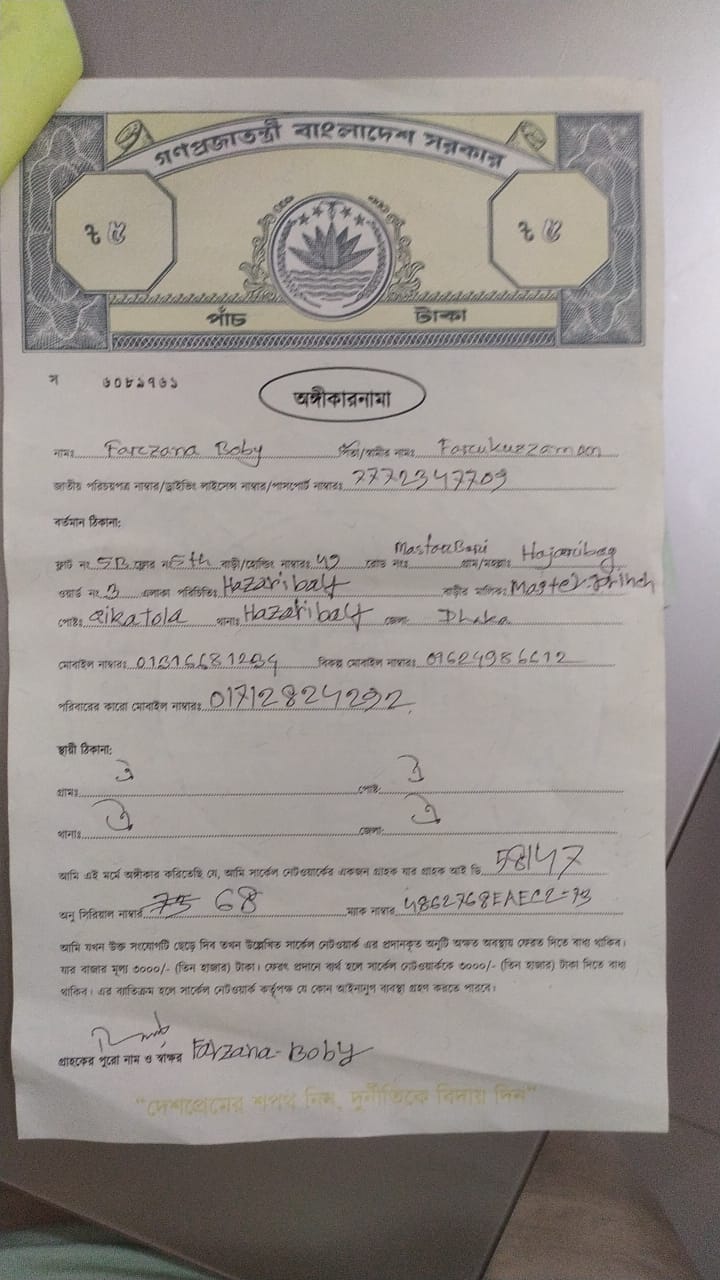 গণপ্রজাতন্ত্রী বাংলাদেশ সরকার
৳ ৫ ৳ ৫
পাঁচ টাকা
স ৬০৮৯৭৬১
অঙ্গীকারনামা
নামঃ Farzana Boby পিতা/স্বামীর নামঃ Farukuzzaman
জাতীয় পরিচয়পত্র নাম্বার/ড্রাইভিং লাইসেন্স নাম্বার/পাসপোর্ট নাম্বারঃ 7772347709
বর্তমান ঠিকানা:
ফ্লাট নং 5B ফ্লোর নং 5th বাড়ী/হোল্ডিং নাম্বারঃ 49 রোড নংঃ Mastar Bari গ্রাম/মহল্লাঃ Hajaribag
ওয়ার্ড নং 3 এলাকা পরিচিতিঃ বাড়ীর মালিকঃ Master
পোষ্টঃ Zikatola থানাঃ জেলাঃ Dhaka
মোবাইল নাম্বারঃ বিকল্প মোবাইল নাম্বারঃ
পরিবারের কারো মোবাইল নাম্বারঃ 01712824292
স্থায়ী ঠিকানা:
গ্রামঃ ঐ পোষ্ট: ঐ
থানাঃ ঐ জেলা: ঐ
আমি এই মর্মে অঙ্গীকার করিতেছি যে, আমি সার্কেল নেটওয়ার্কের একজন গ্রাহক যার গ্রাহক আই ডি 58147
অনু সিরিয়াল নাম্বার 68 ম্যাক নাম্বার
আমি যখন উক্ত সংযোগটি ছেড়ে দিব তখন উল্লেখিত সার্কেল নেটওয়ার্ক এর প্রদানকৃত অনুটি অক্ষত অবস্থায় ফেরত দিতে বাধ্য থাকিব।
যার বাজার মূল্য ৩০০০/- (তিন হাজার) টাকা। ফেরৎ প্রদানে ব্যর্থ হলে সার্কেল নেটওয়ার্ককে ৩০০০/- (তিন হাজার) টাকা দিতে বাধ্য
থাকিব। এর ব্যতিক্রম হলে সার্কেল নেটওয়ার্ক কর্তৃপক্ষ যে কোন আইনানুগ ব্যবস্থা গ্রহণ করতে পারবে।
গ্রাহকের পুরো নাম ও স্বাক্ষর Farzana-Boby
"দেশপ্রেমের শপথ নিন, দুর্নীতিকে বিদায় দিন"